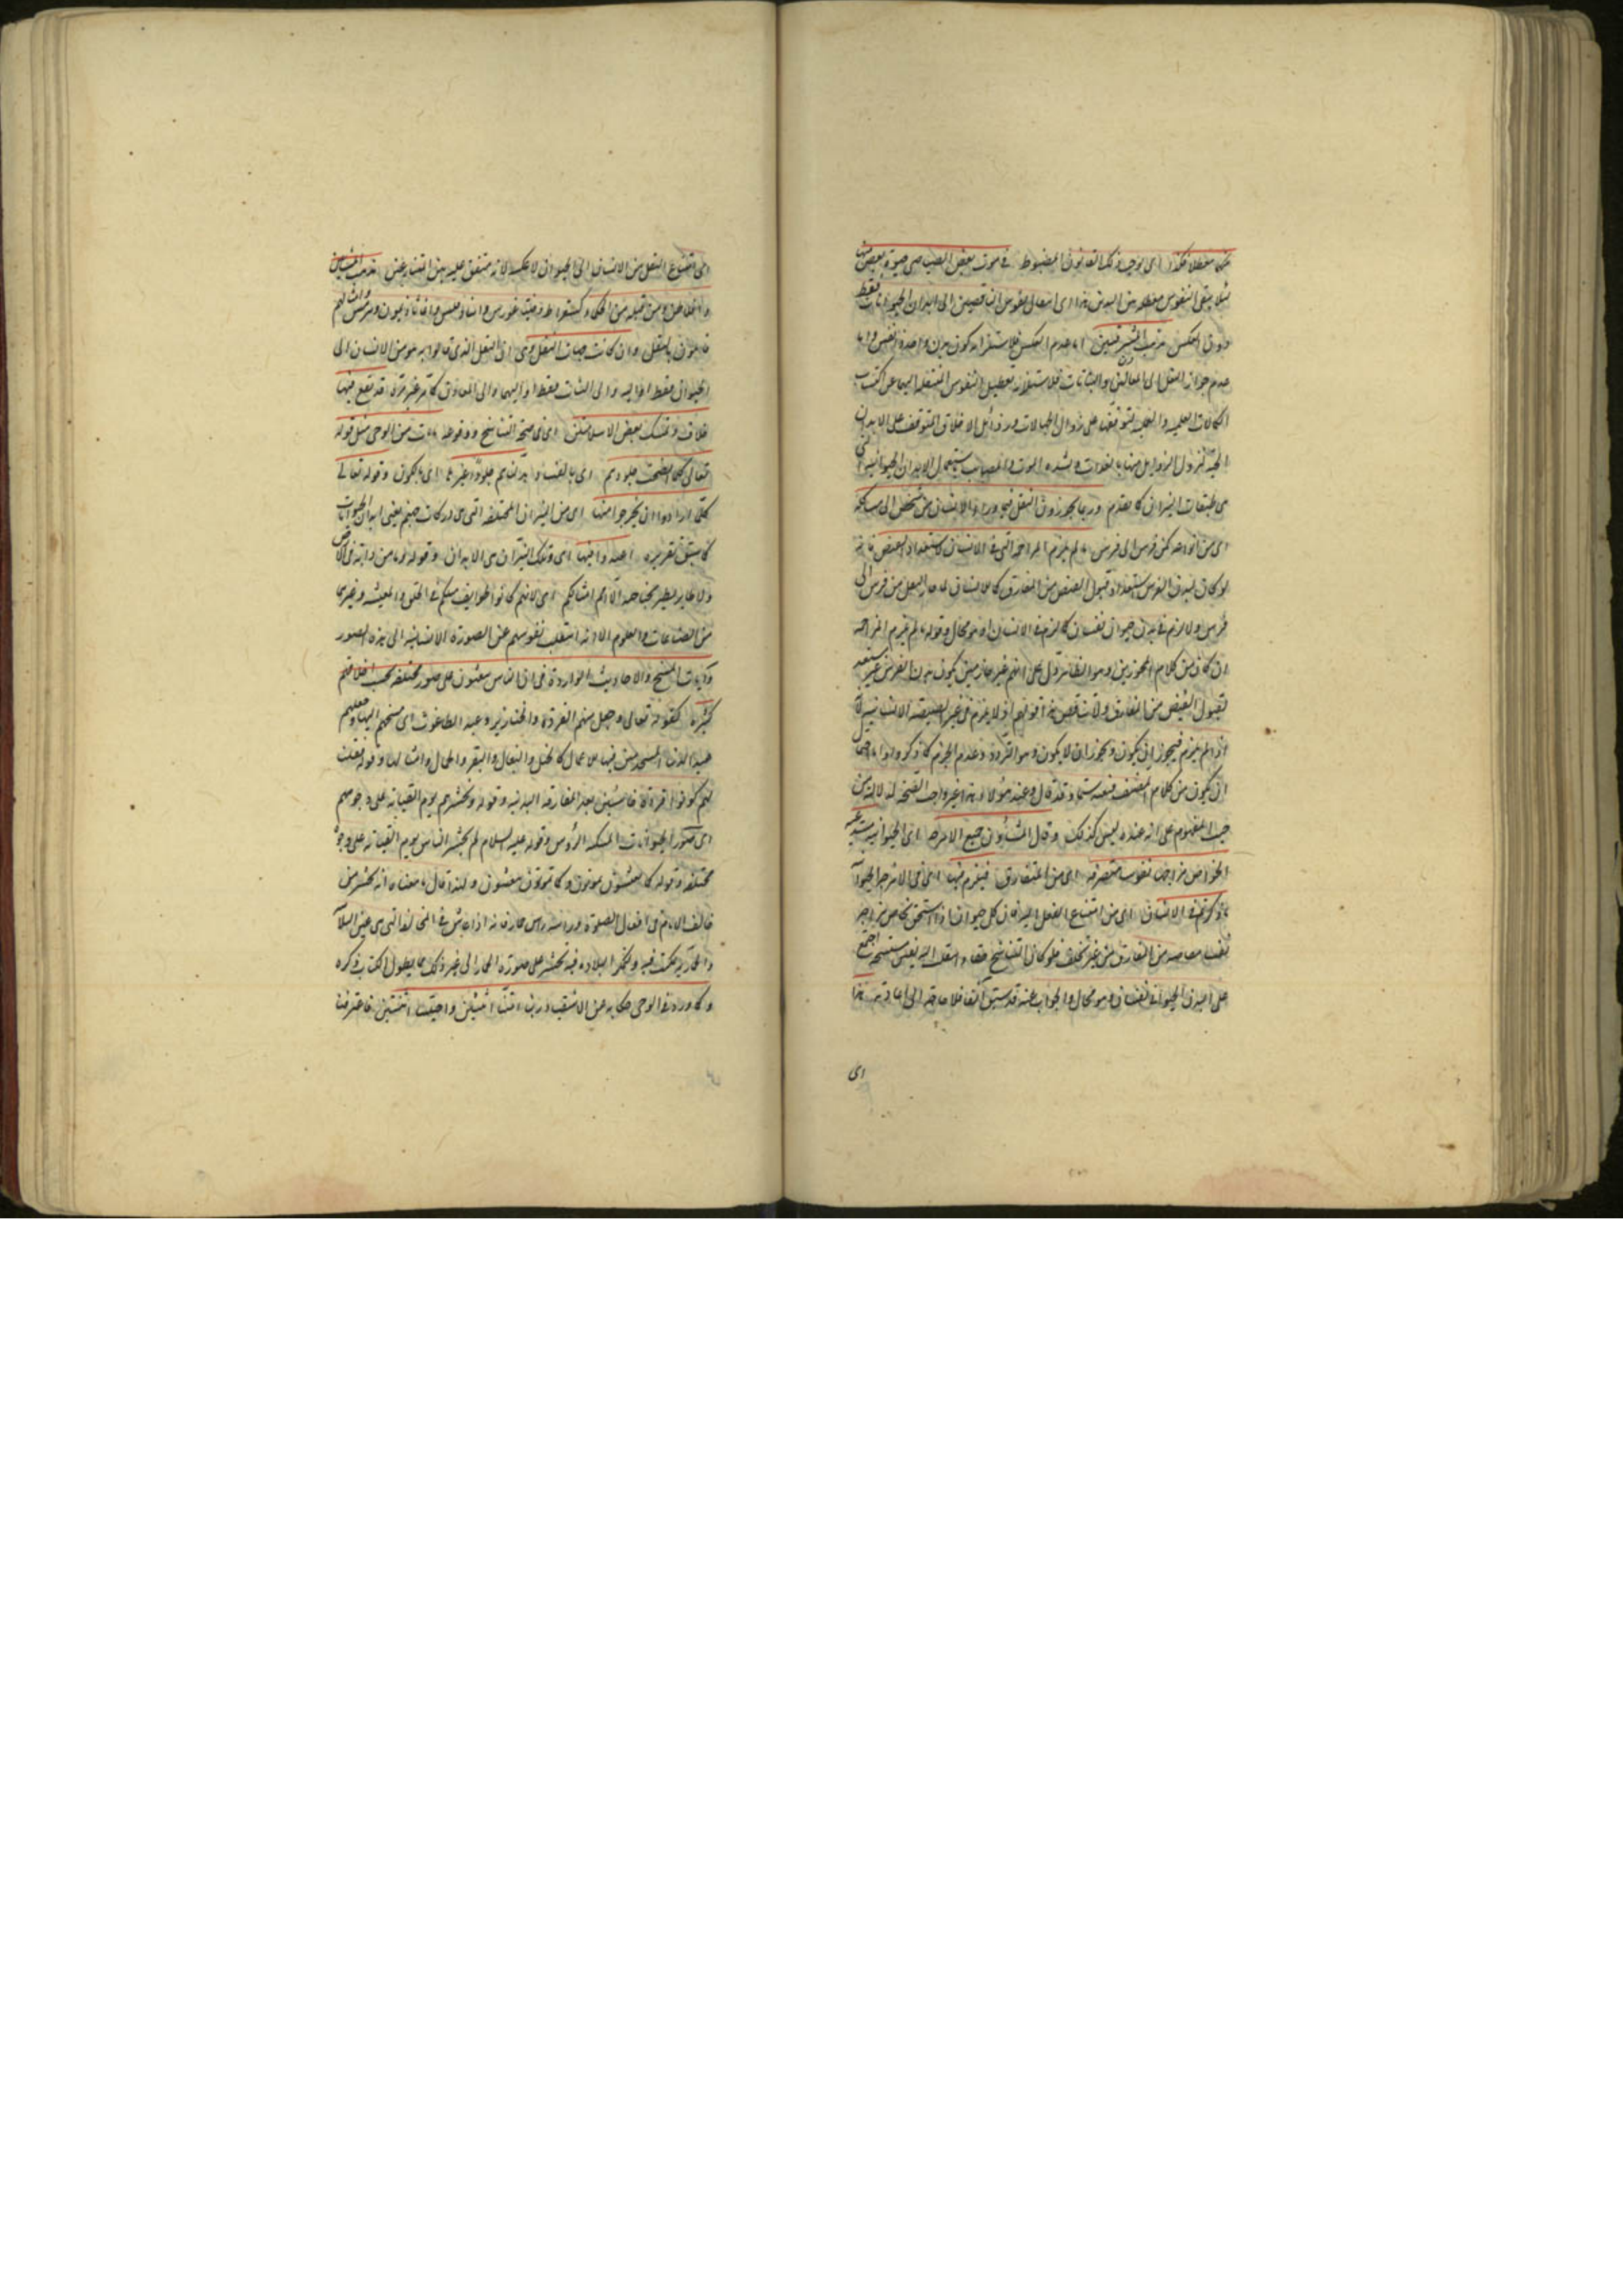 حكما مفصلا فكذا اى يوجب ذلك القانون المضبوط فى موت بعض الصياصى حيوة بعض منها
لئلا يبقى النفوس معطلة بين البدنين هذا اى انتقال نفوس الناقصين الى ابدان الحيوانات فقط
دون العكس مذهب المشرقيين اما عدم العكس فلاستلزامه كون بدن واحد ذا نفسين واما
عدم جواز النقل الى المعادن والنباتات فلاستلزامه تعطيل النفوس المنتقلة اليها عن اكتساب
الكمالات العلمية والعملية لتوقفها على زوال الجهالات ورذائل الاخلاق المتوقف على الابدان
الحسية لتزول الرذايل منها بالعذاب وشدة الموت والمصائب يستعمل الابدان الحيوانية التى
هى طبقات النيران كما تقدم وربما يجوزون النقل فيما وراء الانسان من شخص الى مشاكله
اى من نوعه كمن فرس الى فرس اذ لم يلزم المزاحمة التى فى الانسان لاستعداد الفيض فانه
لو كان لبدن الفرس استعداد قبول الفيض من المفارق كالانسان لما جاز النقل من فرس الى
فرس ولا لزم فى بدن حيوان نفسان كما لزم فى الانسان وهو محال وقوله لم يلزم المزاحمة
ان كان من كلام المجوزين وهو الظاهر دل على انهم غير جازمين بكون بدن الفرس غير مستعد
لقبول الفيض من المفارق ولا تناقض بين اقوالهم اذ لا يلزم فى غير الصيصية الانسانية
اذ لم يلزم فيجوز ان يكون ويجوز ان لا يكون وهو التردد وعدم الجزم كما ذكروا واما احتمال
ان يكون من كلام المصنف فبعيد سيما وقد قال وعند هؤلاء هذا غير واجب الصحة لدلالته من
حيث المفهوم على انه عنده ليس كذلك وقال المشاؤون جميع الامزجة اى الحيوانية يستدعى
لخواص مزاجها نفوسا متصرفة اى من المفارق فيلزم فيها اى فى الامزجة الحيوانية
ما ذكرتم فى الانسان اى من امتناع النقل اليه فان كل حيوان اذا استحق بخاص مزاجه
نفسا مفاضة من المفارق من غير تخلف فلو كان التناسخ حقا وانتقلت اليه نفس مستنسخة اجتمع
على البدن الحيوانى نفسان وهو محال والجواب عنه قد سبق آنفا فلا حاجة الى اعادته هذا
اى
اى امتناع النقل من الانسان الى الحيوان لا عكسه لانه متفق عليه بين المتنازعين مذهب المشائين
وافلاطن ومن قبله من الحكماء كسقراط وفيثاغورس وانباذقلس واغاثاذيمون وهرمس وامثالهم
قائلون بالنقل وان كانت جهات النقل وهى ان النقل الذى قالوا به هو من الانسان الى
الحيوان فقط او اليه والى النبات فقط او اليهما والى المعادن كما مر غير مرة قد تقع فيها
خلاف وتمسك بعض الاسلاميين اى فى صحة التناسخ ووقوعه بآيات من الوحى مثل قوله
تعالى كلما نضجت جلودهم اى بالفساد بدلناهم جلودا غيرها اى بالكون وقوله تعالى
كلما ارادوا ان يخرجوا منها اى من النيران المختلفة التى هى دركات جهنم يعنى ابدان الحيوانات
كما سبق تقريره اعيدوا فيها اى وتلك النيران هى الابدان وقوله وما من دابة فى الارض
ولا طاير يطير بجناحيه الا امم امثالكم اى لانهم كانوا طوايف مثلكم فى الخلق والمعيشة وغيرها
من الصناعات والعلوم الا انه انتقلت نفوسهم عن الصورة الانسانية الى هذه الصور
وآيات المسخ والاحاديث الواردة فى ان الناس يبعثون على صور مختلفة بحسب اخلاقهم
كثيرة كقوله تعالى وجعل منهم القردة والخنازير وعبد الطاغوت اى مسخهم اليها وجعلهم
عبيدا لذلك المستخدمين فيها للاعمال كالخيل والبغال والبقر والجمال وامثالها وقوله فقلنا
لهم كونوا قردة خاسئين بعد المفارقة البدنية وقوله ونحشرهم يوم القيامة على وجوههم
اى صور الحيوانات المنكسة الرؤس وقوله عليه السلام لم يحشر الناس يوم القيامة على وجوه
مختلفة وقوله كما تعيشون تموتون وكما تموتون تبعثون ولهذا قال ما معناه انه يحشر من
خالف الامام فى افعال الصلوة وراسه راس حمار فانه اذا عاش فى المخالفة التى هى عين البلادة
والحمارية تمكنت فيه ولتمكن البلادة فيه يحشر على صورة الحمار الى غير ذلك مما يطول الكتاب بذكره
وكما ورد فى الوحى حكاية عن الاشقياء ربنا امتنا اثنتين واحييتنا اثنتين فاعترفنا